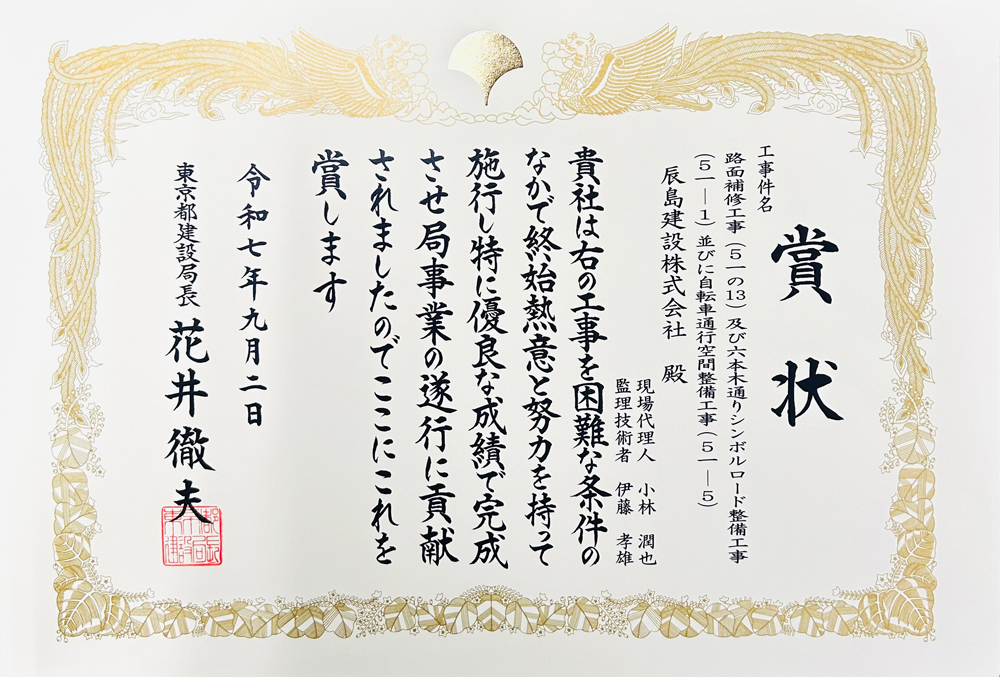 賞状
工事件名
路面補修工事（５一の13）及び六本木通りシンボルロード整備工事
（５一―１）並びに自転車通行空間整備工事（５一―５）
辰島建設株式会社　殿
現場代理人　小林　潤也
監理技術者　伊藤　孝雄
貴社は右の工事を困難な条件の
なかで終始熱意と努力を持って
施行し特に優良な成績で完成
させ局事業の遂行に貢献
されましたのでここにこれを
賞します
令和七年九月二日
東京都建設局長　花井徹夫